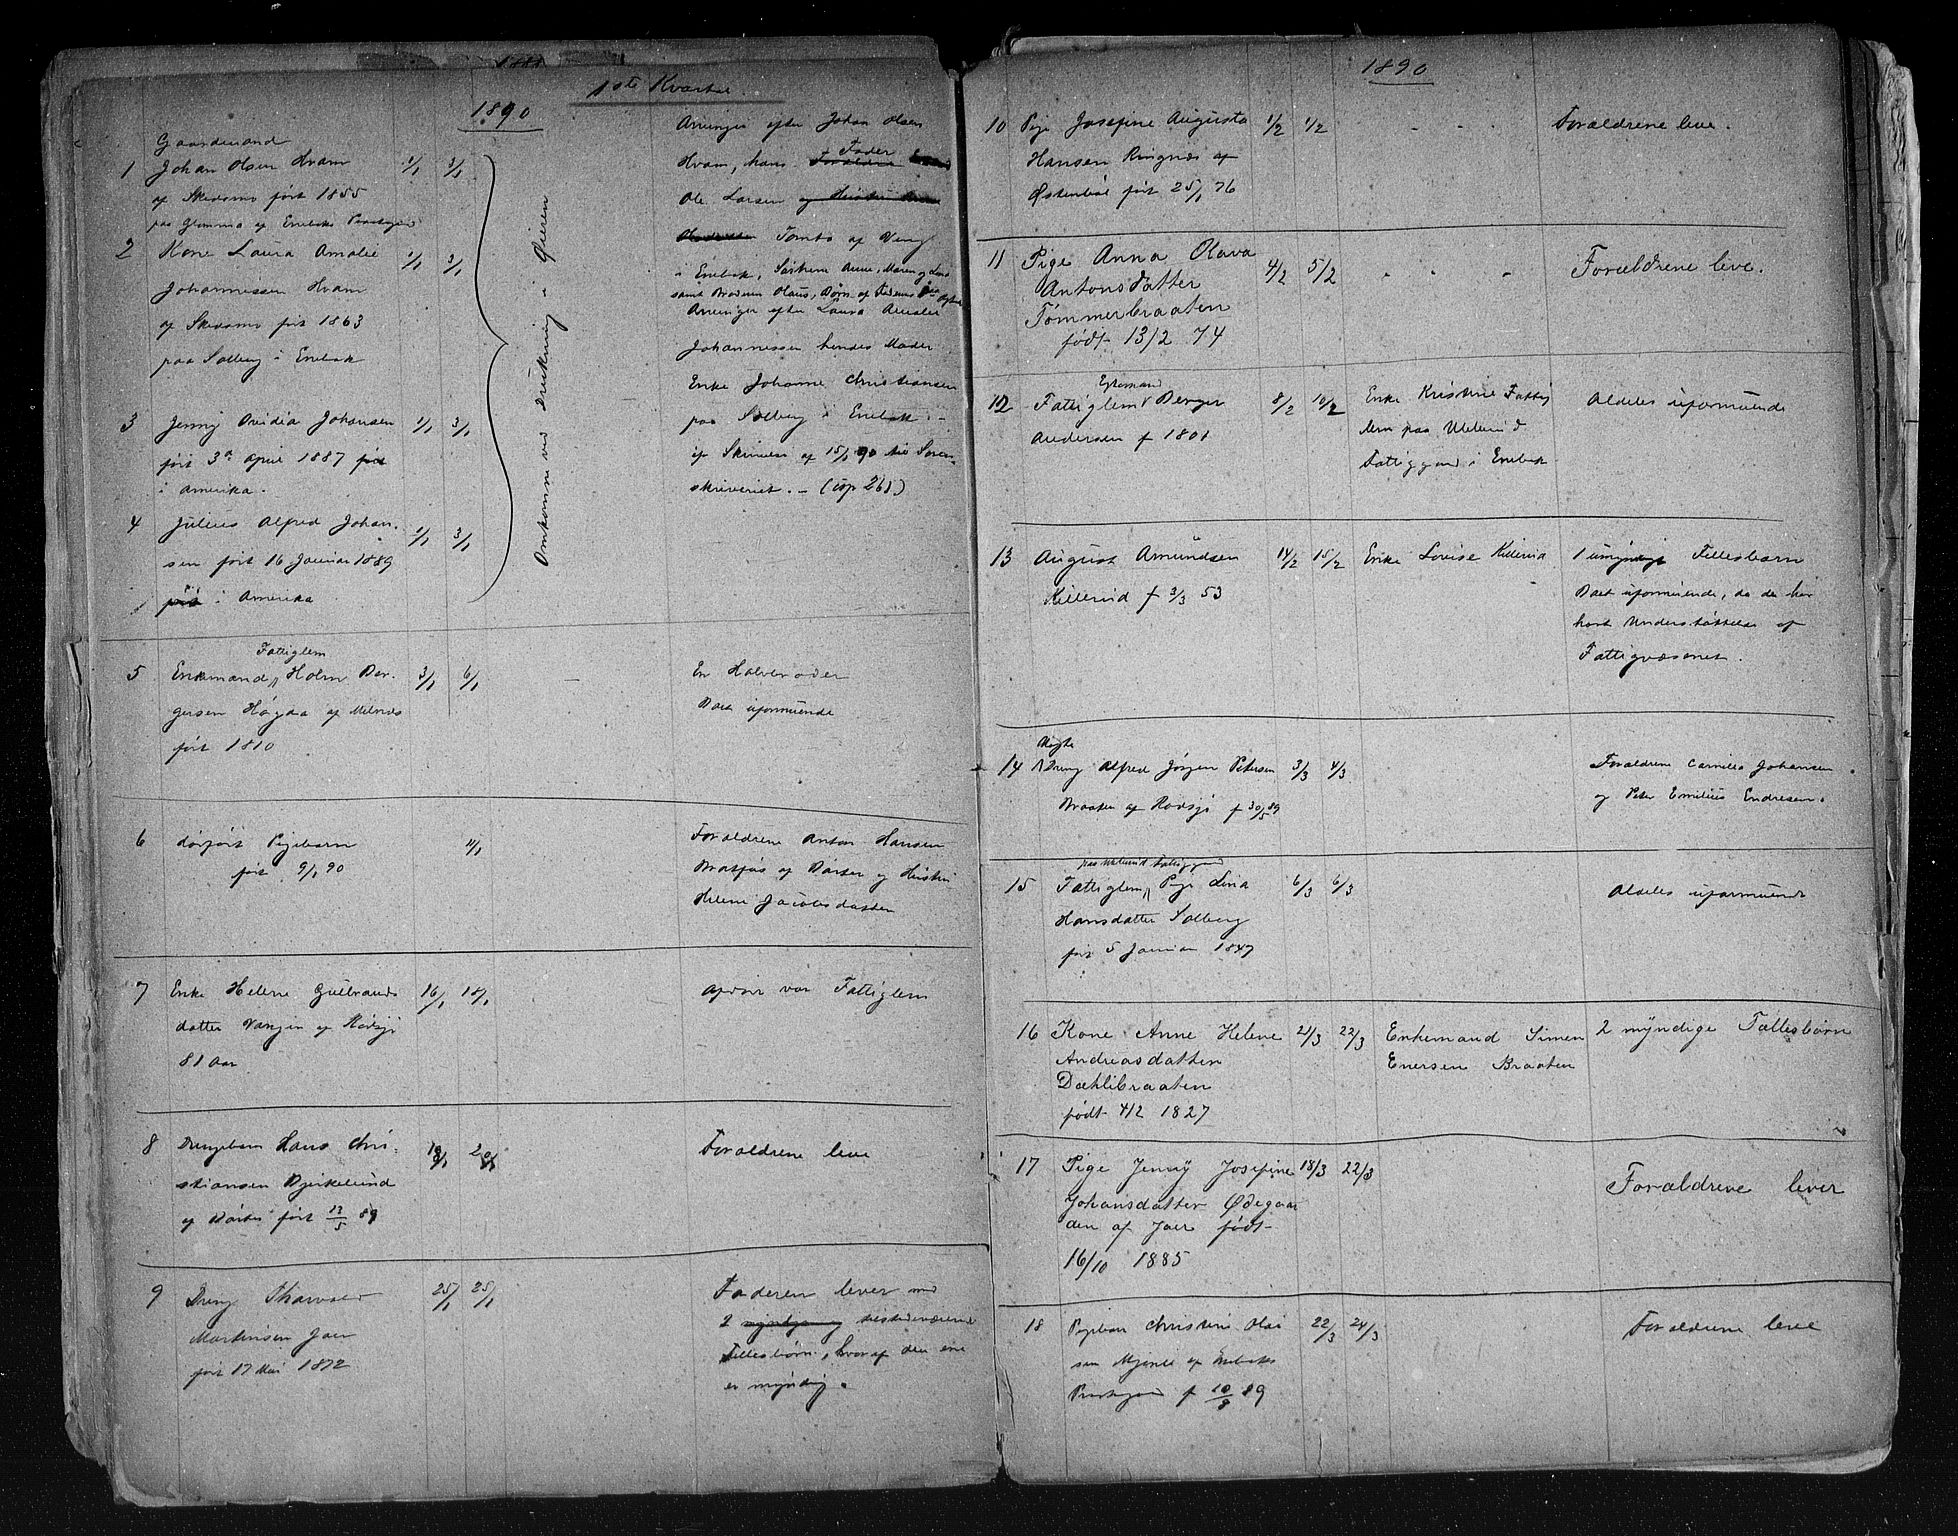 1ste Kvartal
1890
Gaardmand
1 Johan Olsen Hvam 1/1 3/1
af Skedsmo født 1855
paa Glomma af Enebaks Præstegjæld
2 Kone Laura Amalie 1/1 3/1
Johannessen Hvam
af Skedsmo født 1863
paa Solberg i Enebak
3 Jenny Ovidia Johansen 1/1 3/1
født 3die April 1887
i Amerika.
4 Julius Alfred Johan- 1/1 3/1
sen født 16 Januar 1889
i Amerika
Omkomne ved Drukning i Øieren
Arvinger efter Johan Olsen
Hvam, hans Forældre Fader
Ole Larsen og Hustru
Tomta af Vaag
i Enebak, Søstrene Anne, Maren og
samt Broderen Olaus, Børn af Faderens
Arvinger efter Laura Amalie
Johannessen hendes Moder
Enke Johanne Christiansen
paa Solberg i Enebak -
if Skrivelse af 15/1 90 til Soren-
skriveriet. - (cop 268)
Fattiglem
5 Enkemand Holm Ber- 3/1 6/1 — En Halvbroder
gersen Høgda af Melnæs Boet uformuende
født 1810
6 dødfødt Pigebarn 11/1 Forældrene Anton Hansen
født 9/1 90 Bratfos af Børter og Hustru
Helene Jacobsdatter
7 Enke Helene Gulbrands 16/1 18/1 Afdøde var Fattiglem
datter Vangen af Rødsjø
81 Aar
8 Drengebarn Hans Chri- 18/1 20/1 Forældrene leve
stiansen Bjerkelund
af Børter født 13/5 89
9 Dreng Thorvald 25/1 25/1 Faderen lever med
Martinsen Jaer 2 tilstedeværende
født 17 Mai 1872 Fællesbørn, hvoraf den ene
er myndig.
1890
10 Pige Josefine Augusta 1/2 1/2 - - - Forældrene leve.
Hansen Ringnæs af
Østenbøl født 25/1 76
11 Pige Anna Olava 4/2 5/2 - - - Forældrene leve.
Antonsdatter
Tømmerbraaten
født 13/2 74
Egtemand
12 Fattiglem Berger 8/2 10/2 Enke Kristine Fattig Aldeles uformuende
Andersen f 1801 lem paa Ulelerud
Fattiggaard i Enebak
13 August Amundsen 14/2 15/2 Enke Lovise Killerud 1 umyndigt Fællesbarn
Killerud f 3/3 53 Boet uformuende, da de har
havt Understøttelse af
Fattigvæsenet.
Uægte
14 Dreng Alfred Jørgen Petersen 3/3 4/3 Forældrene Camilla Johansen
Braaten af Rødsjø f 30/5 89 og Peter Emilius Endresen.
Fattiggaard
15 Fattiglem Pige Lina 6/3 6/3 Aldeles uformuende
Hansdatter Solberg
født 5 Januar 1847
16 Kone Anne Helene 21/3 22/3 Enkemand Simen 2 myndige Fællesbørn
Andreasdatter Enersen Braaten
Dæhlibraaten
født 4/2 1827
17 Pige Jenny Josefine 18/3 22/3 Forældrene lever
Johansdatter Ødegaar
den af Jaer født
16/10 1885
18 Pigebarn Christine Olai 22/3 24/3 Forældrene leve
sen Mjønli af Enebaks
Præstegaard f 10/8 89